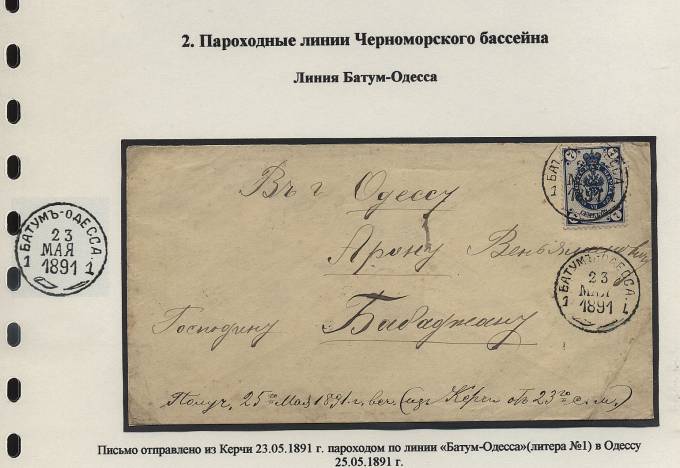 2. Пароходные линии Черноморского бассейна
Линия Батум-Одесса
БАТУМЪ-ОДЕССА.
23
МАЯ
1 1891 1
Въ г. Одессу
Арону Веньяминовичу
Господину Бабаджану
Получ. 25го Мая 1891 г. веч. (изъ Керчи отъ 23го с. м.)
БАТУМЪ-ОДЕССА.
23
МАЯ
1 1891 1
Письмо отправлено из Керчи 23.05.1891 г. пароходом по линии «Батум-Одесса»(литера №1) в Одессу
25.05.1891 г.